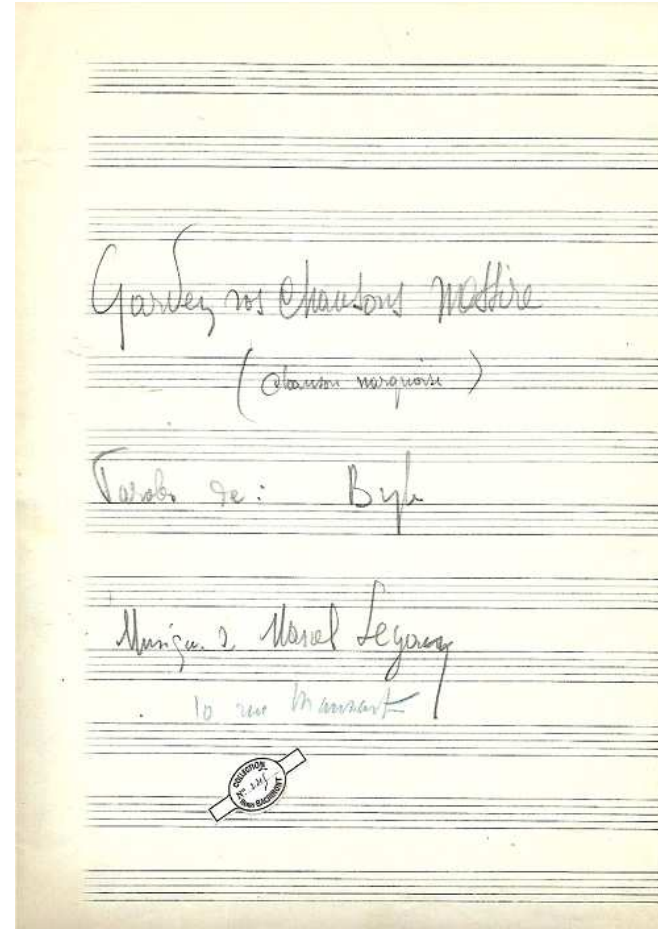 Gardez vos chansons Messire
(chanson narquoise)
Paroles de :
Musique de Marcel Legay
10 rue Mansart
COLLECTION
Henri BACHIMONT